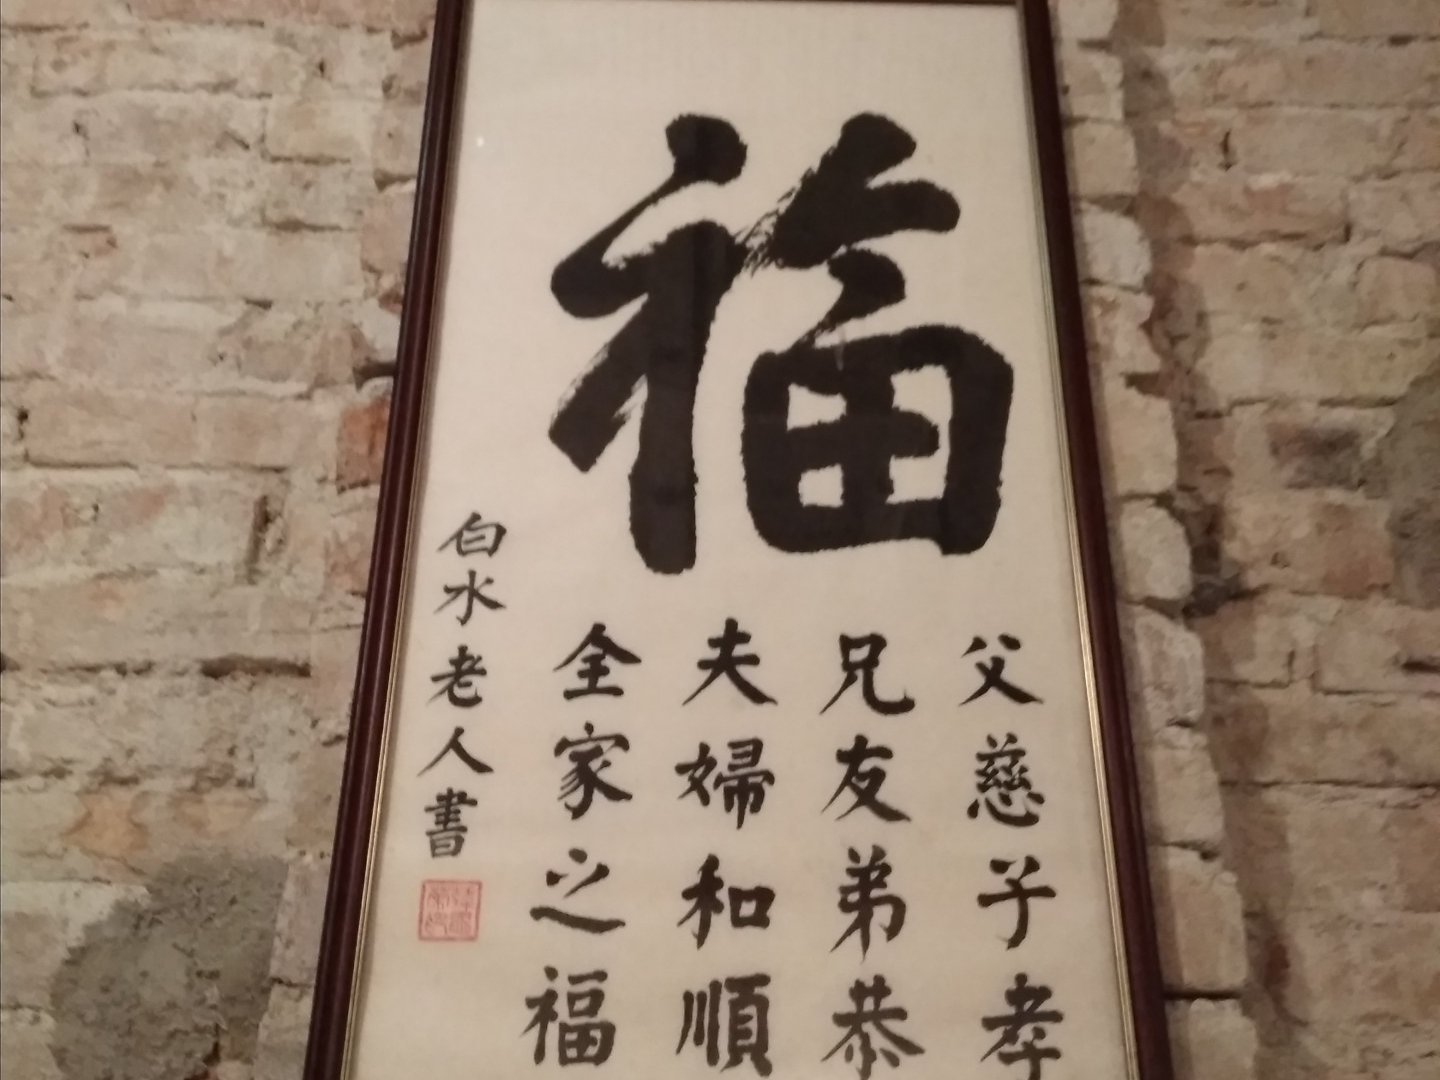 福
父慈子孝
兄友弟恭
夫婦和順
全家之福
白水老人書